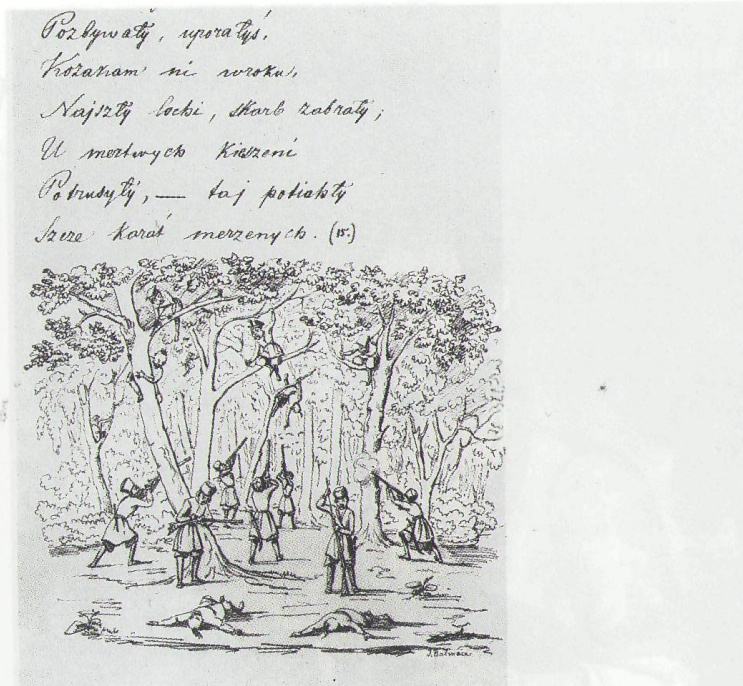 Pozbywały, uporałyś,
Kozakam ni wroku,
Najszły lochi, skarb zabrały;
U mertwych Kieszeni
Potrusyły, — taj potiahły
Szcze karát merzenych. (15.)